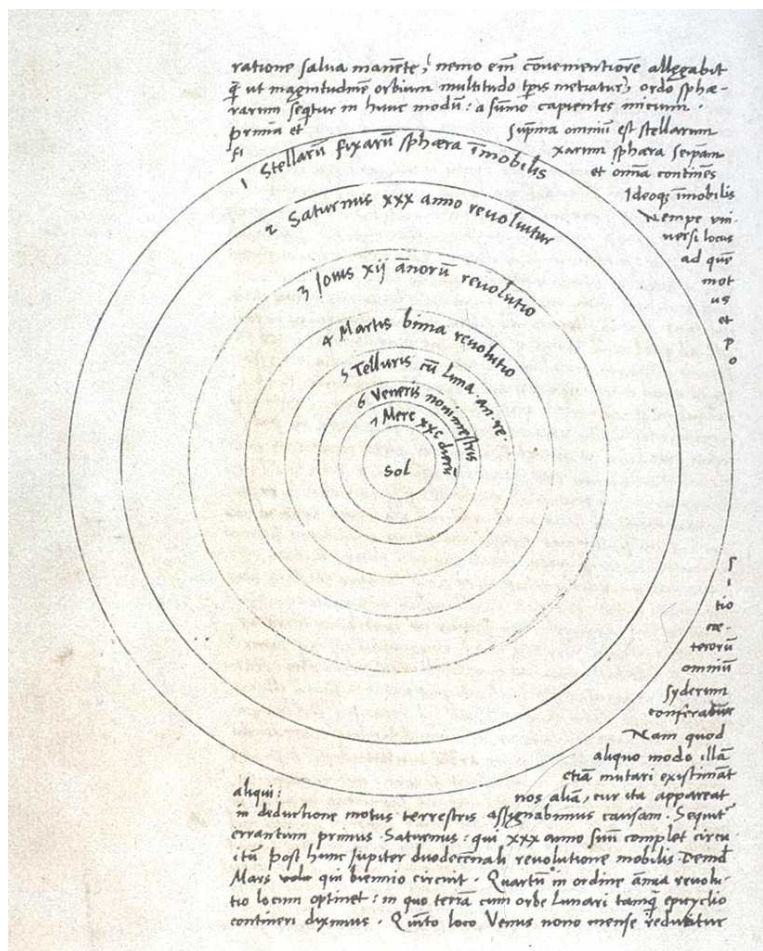 ratione salua manēte, nemo em̄ conuenientiorē allegabit
q̄ ut magnitudinē orbium multitudo tp̄is metiatur, ordo sphæ-
rarum seq̄tur in hunc modū: a sūmo capientes initium.
prima et Sup̄ma omniū est stellarum
fi xarum sphæra seip̄am
et omīa continēs
Ideoq̨ īmobilis
Nempe vni-
uersi locus
ad quē
mot
us
et
p
o
1 Stellarū fixarū sphæra īmobilis
2 Saturnus xxx anno reuoluitur
3 Iouis xij ānorū reuolutio
4 Martis bima reuolutio
5 Telluris cū luna an. re.
6 Veneris nonimestris
7 Merc xxc dierū
Sol
s
i
tio
cæ-
terorū
omniū
syderum
conferatur
Nam quod
aliquo modo illā
etiā mutari existimāt
aliqui: nos aliā, cur ita appareat
in deductione motus terrestris assignabimus causam. Sequit᷑
errantium primus Saturnus: qui xxx anno suū complet circu
itū post hunc Iupiter duodecennali reuolutione mobilis Deinde
Mars qui biennio circuit. Quartū in ordine ānua reuolu-
tio locum optinet: in quo terrā cum orbe Lunari tamq̄ epicyclo
contineri diximus. Quinto loco Venus nono mense reducitur